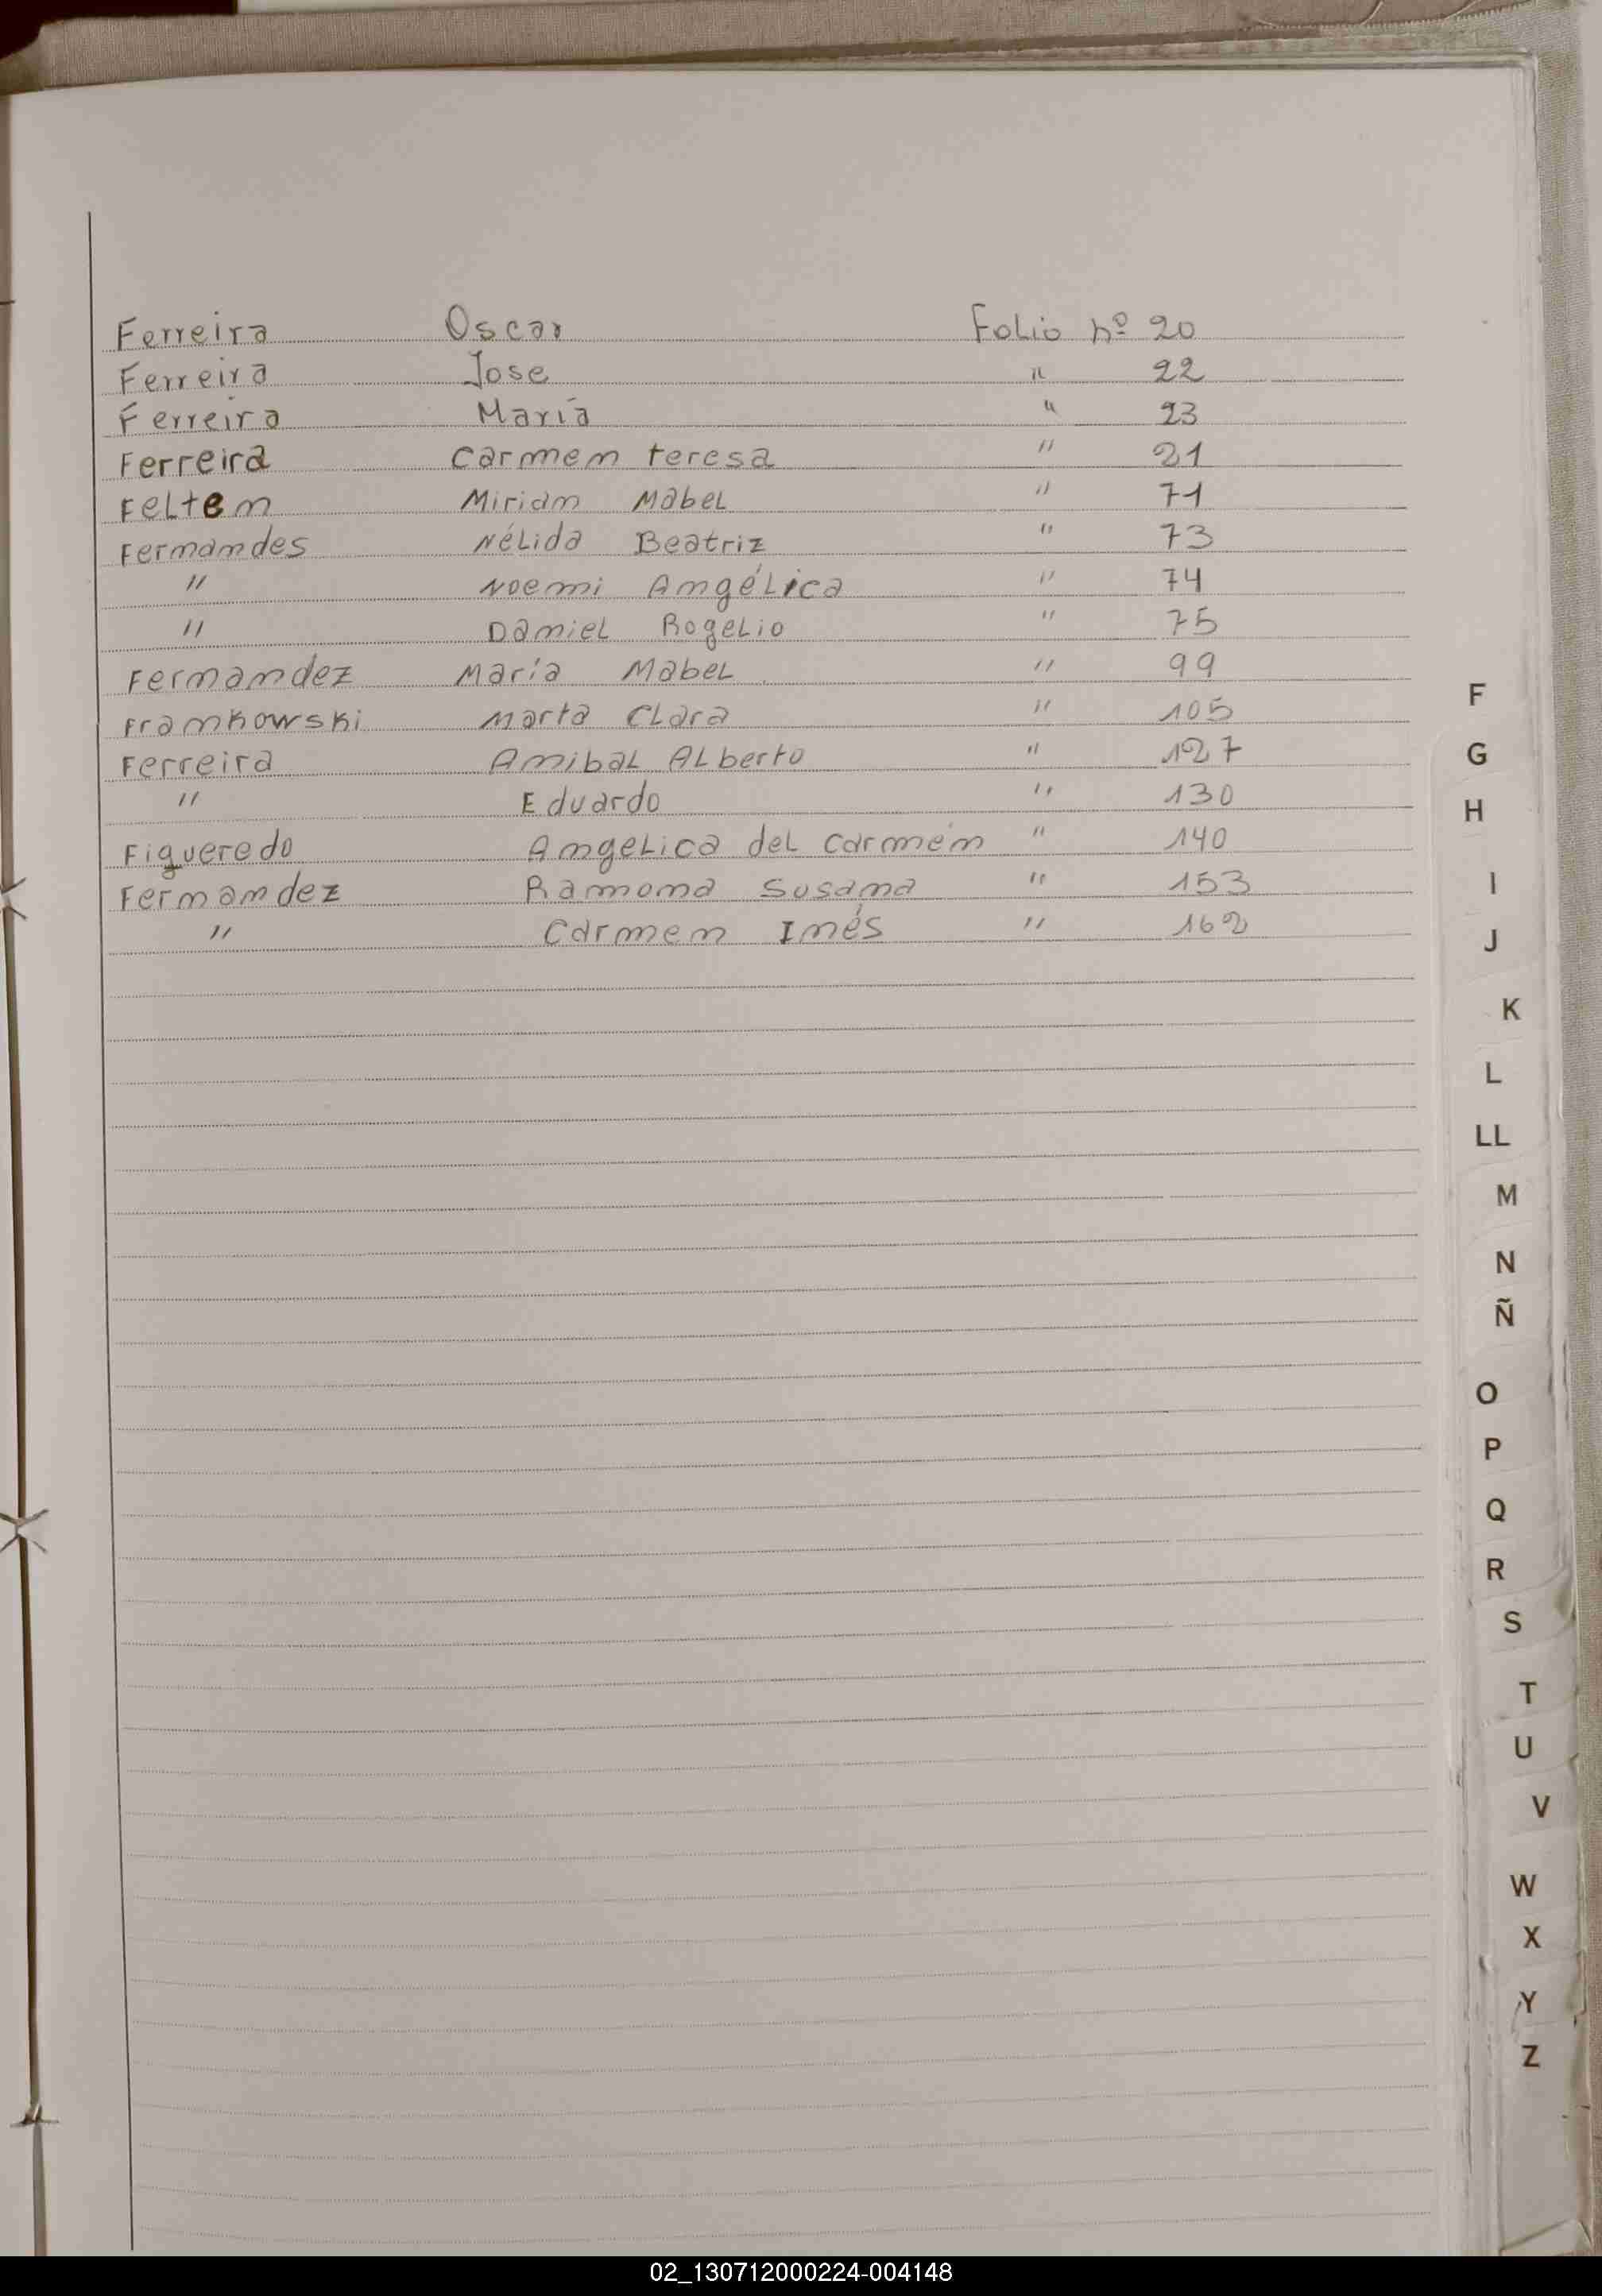 Ferreira Oscar Folio nº 20
Ferreira Jose " 22
Ferreira María " 23
Ferreira Carmen teresa " 21
Felten Miriam Mabel " 71
Fernandes Nélida Beatriz " 73
" Noemi Angélica " 74
" Daniel Rogelio " 75
Fernandez María Mabel " 99
Frankowski Marta Clara " 105
Ferreira Anibal Alberto " 127
" Eduardo " 130
Figueredo Angelica del Carmen " 140
Fernandez Ramona Susana " 153
" Carmen Inés " 162
F
G
H
I
J
K
L
LL
M
N
Ñ
O
P
Q
R
S
T
U
V
W
X
Y
Z
02_130712000224-004148